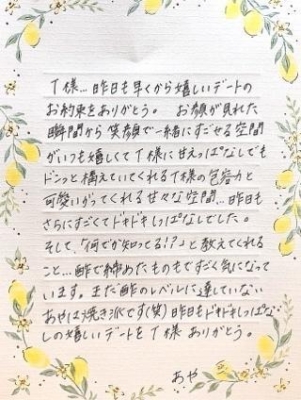 T様…昨日も早くから嬉しいデートの
お約束をありがとう。 お顔が見れた
瞬間から笑顔で一緒にすごせる空間
がいつも嬉しくてT様に甘えっぱなしでも
ドンッと構えていてくれるT様の包容力と
可愛いがってくれる甘々な空間…昨日も
さらにすごくてドキドキしっぱなしでした。
そして、「何でか知ってる!?」と教えてくれる
こと…酢で締めたものもすごく気になって
います。まだ酢のレベルに達していない
あやは焼き派です(笑)昨日もドキドキしっぱな
しの嬉しいデートをT様ありがとう。
あや